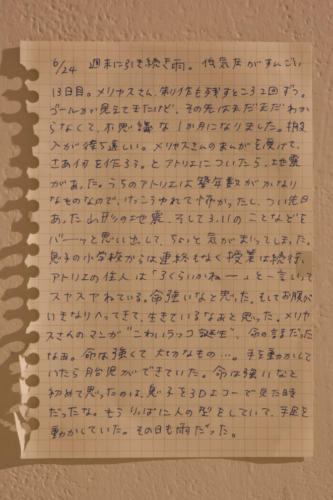 6/24 週末に引き続き雨。低気圧がすんごい
13日目。メリヤスさん、制作も残すところ2回ずつ。
ゴールが見えてきたけど、その先はまだまだわか
らなくて、不思議な1か月になりました。搬
入が待ち遠しい。メリヤスさんのまんがを受けて、
さあ何を作ろう。とアトリエについたら、地震
があった。うちのアトリエは築年数がかなり
なものなので、けっこうゆれて怖かったし、つい先日
あった山形の地震、そして3.11のことなどを
バーッと思い出して、ちょっと気がまいってしまった。
息子の小学校からは連絡もなく授業は続行、
アトリエの住人は「3くらいかねー」と言って
スヤスヤねている。命強いなと思った。そしてお腹が
いきなりへってきて、生きているなあと思った。メリヤ
スさんのマンガ"こわいラッコ誕生"、命の話だった
なあ。命は強くて大切なもの…。手を動かして
いたら胎児ができていた。命は強いなと
初めて思ったのは、息子を3Dエコーで見た時
だったな。もうりっぱに人の型をしていて、手足を
動かしていた。その日も雨だった。